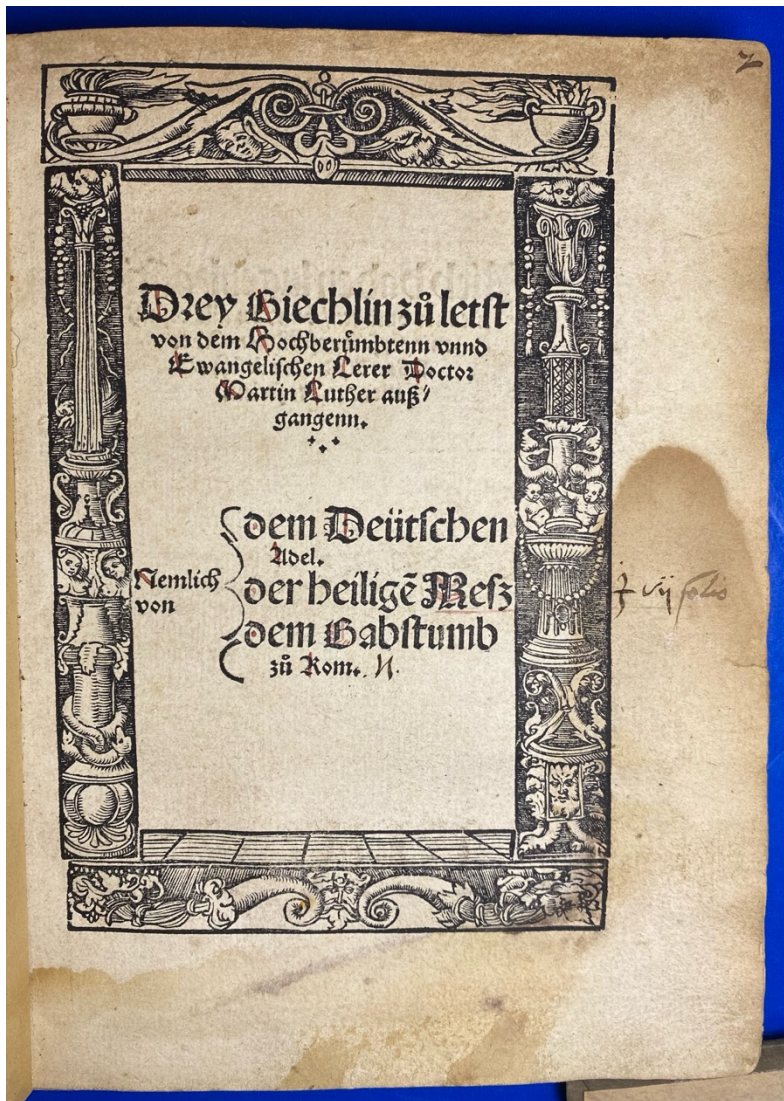 2
Drey Biechlin zů letst
von dem Hochberümbtenn vnnd
Ewangelischen Lerer Doctor
Martin Luther auß/
gangenn.
dem Deütschen
Adel.
Nemlich
von
der heiligẽ Mesz
dem Babstumb
zů Rom.
vij folio